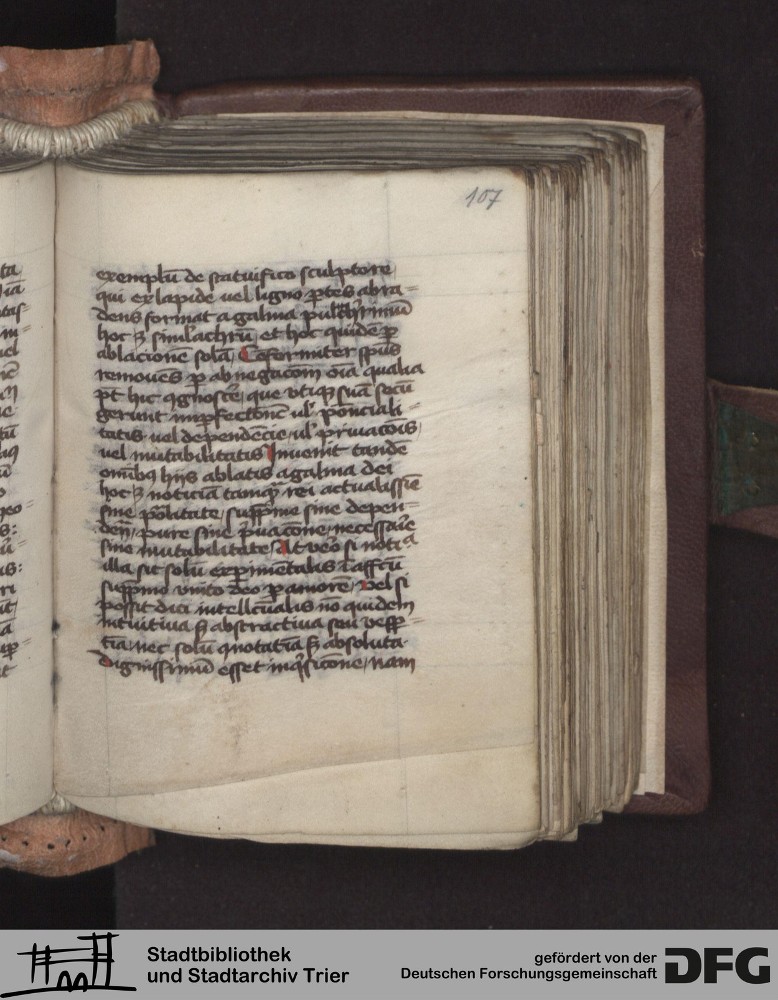 107
exemplū de statuifico sculptore
qui ex lapide uel ligno ꝑtes abra-
dens format agalma pulcherrimū
hoc ꝫ simlachrū et hoc quidē ꝑ
ablacionē solā Coformiter spūs
remouēs ꝑ abnegacōm oīa qualia
pt hic ꝯgnoscē, que utiqꝫ suā secū
gerunt imꝑfectōnē ul' potēciali-
tatis uel dependēcie, ul' priuacōis,
uel mutabilitatis Inuenit tandē
omībꝫ hiis ablatis agalma dei
hoc ꝫ noticiā tamqꝫ rei actualissīe
sine potītate, supp̄me sine depen-
dētia, pure sine p̄uacōne, necessarie
sine mutabilitate, At uero si notia
illa sit solū experimētalis ī affctū
supp̄mo unito deo ꝑ amorē, Vel si
possit dici intellctualis nō quidem
intuitiua sꝫ abstractiua seu
tīa, nec solū ꝯnotatīa sꝫ absoluta
Dignissimū esset inqͥsicōne, nam
ta
uel
Stadtbibliothek
und Stadtarchiv Trier
gefördert von der
Deutschen Forschungsgemeinschaft
DFG